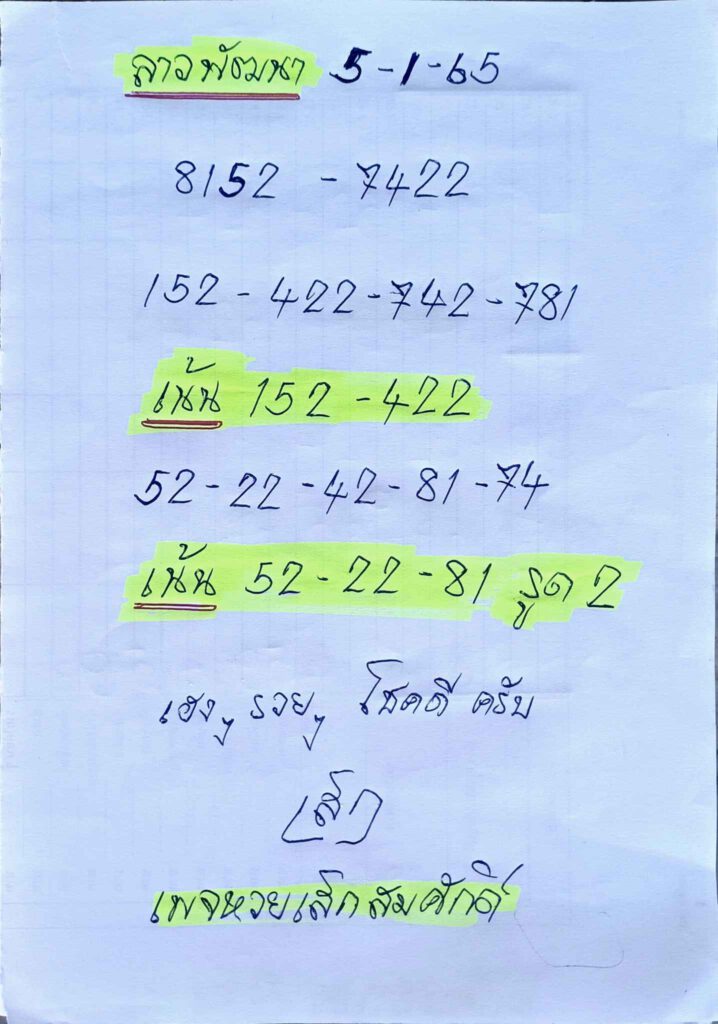 ลาวพัฒนา 5-1-65
8152 - 7422
152 - 422 - 742 - 781
เน้น 152 - 422
52 - 22 - 42 - 81 - 74
เน้น 52 - 22 - 81 รูด 2
เฮงๆ รวยๆ โชคดี ครับ
เสก
เพจหวยเสกสมศักดิ์